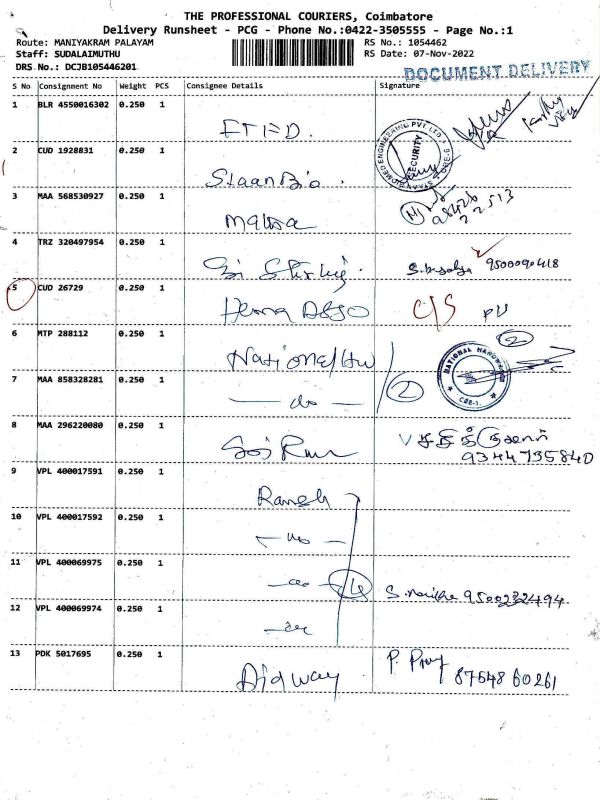 THE PROFESSIONAL COURIERS, Coimbatore
Delivery Runsheet - PCG - Phone No.:0422-3505555 - Page No.:1
Route: MANIYAKRAM PALAYAM RS No.: 1054462
Staff: SUDALAIMUTHU RS Date: 07-Nov-2022
DRS No.: DCJB105446201
DOCUMENT DELIVERY
S No Consignment No Weight PCS Consignee Details Signature
1 BLR 4550016302 0.250 1
2 CUD 1928831 0.250 1
SECURITY
3 MAA 568530927 0.250 1
4 TRZ 320497954 0.250 1 9500090418
5 CUD 26729 0.250 1 C/S
6 MTP 288112 0.250 1 2
NATIONAL HARDWARE
CBE-1.
7 MAA 858328281 0.250 1 - do - 2
8 MAA 296220080 0.250 1 Sri Ram
9344735840
9 VPL 400017591 0.250 1 Ramesh
10 VPL 400017592 0.250 1 - do -
11 VPL 400069975 0.250 1 - do - 4 9500232494
12 VPL 400069974 0.250 1 - do -
13 PDK 5017695 0.250 1 Aidway P. 8754860261